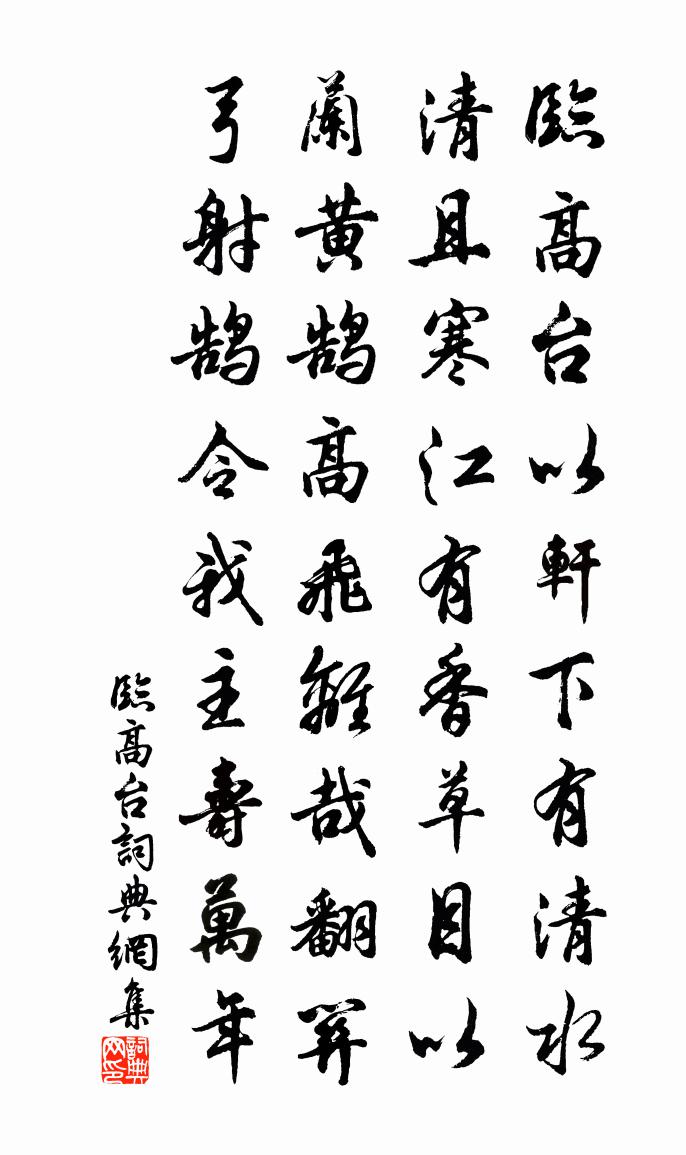 臨高台以軒下有清水
清且寒江有香草目以
蘭黄鹄高飛離哉翻關
弓射鹄令我主壽萬年
臨高台詞典網集
詞典网印